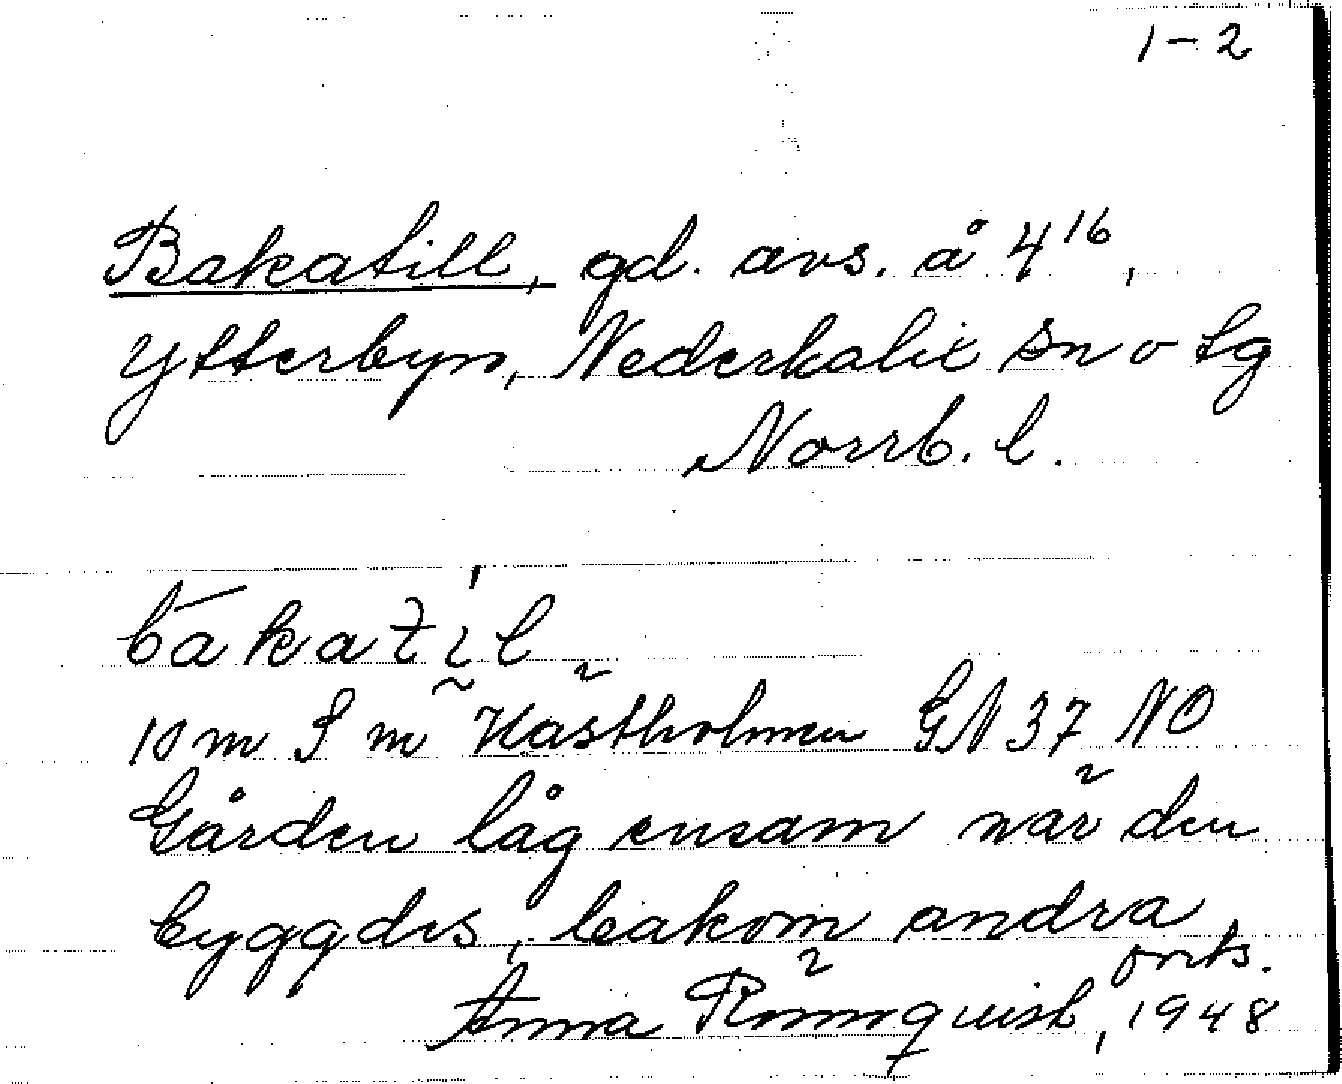 1-2
Bakatill, gd. avs. å 4¹⁶,
Ytterbyn, Nederkalix sn o tg
Norrb. l.
bākatìl
10 m S m Hästholmen GN 37 NO
Gården låg ensam när den
byggdes, bakom andra
orts.
Anna Rönnquist, 1948